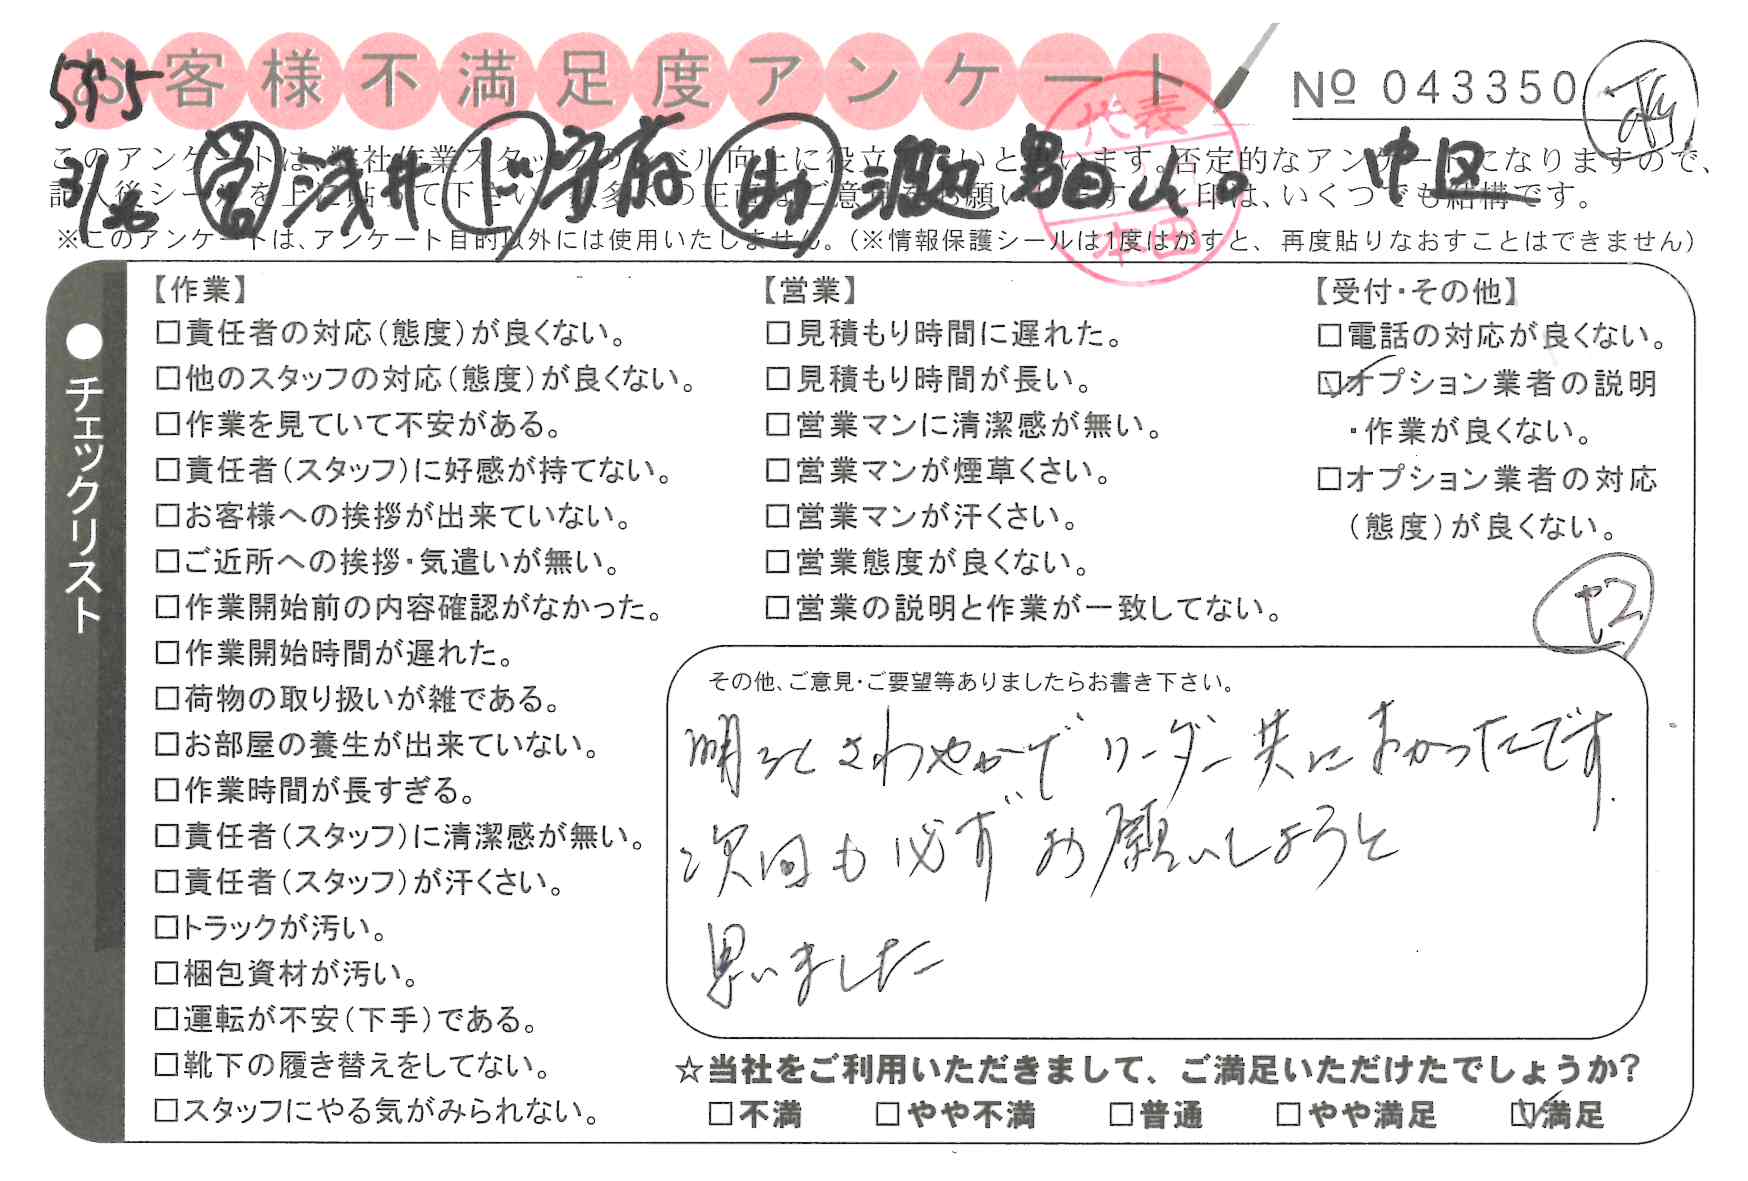 お客様不満足度アンケート
№ 043350
595
3/26 営 浅井 ド 別府 助 渡辺 男田山の 中区
代表
本田
このアンケートは、弊社作業スタッフのレベル向上に役立てたいと思います。否定的なアンケートになりますので、
記入後シールを上に貼って下さい。数多くの正直なご意見をお願いします。チェック印は、いくつでも結構です。
※このアンケートは、アンケート目的以外には使用いたしません。（※情報保護シールは1度はがすと、再度貼りなおすことはできません）
●チェックリスト
【作業】
□責任者の対応（態度）が良くない。
□他のスタッフの対応（態度）が良くない。
□作業を見ていて不安がある。
□責任者（スタッフ）に好感が持てない。
□お客様への挨拶が出来ていない。
□ご近所への挨拶・気遣いが無い。
□作業開始前の内容確認がなかった。
□作業開始時間が遅れた。
□荷物の取り扱いが雑である。
□お部屋の養生が出来ていない。
□作業時間が長すぎる。
□責任者（スタッフ）に清潔感が無い。
□責任者（スタッフ）が汗くさい。
□トラックが汚い。
□梱包資材が汚い。
□運転が不安（下手）である。
□靴下の履き替えをしてない。
□スタッフにやる気がみられない。
【営業】
□見積もり時間に遅れた。
□見積もり時間が長い。
□営業マンに清潔感が無い。
□営業マンが煙草くさい。
□営業マンが汗くさい。
□営業態度が良くない。
□営業の説明と作業が一致してない。
【受付・その他】
□電話の対応が良くない。
☑オプション業者の説明
・作業が良くない。
□オプション業者の対応
（態度）が良くない。
その他、ご意見・ご要望等ありましたらお書き下さい。
明るくさわやかで リーダー共によかったです
次回も必ずお願いしようと
思いました
☆当社をご利用いただきまして、ご満足いただけたでしょうか？
□不満 □やや不満 □普通 □やや満足 ☑満足